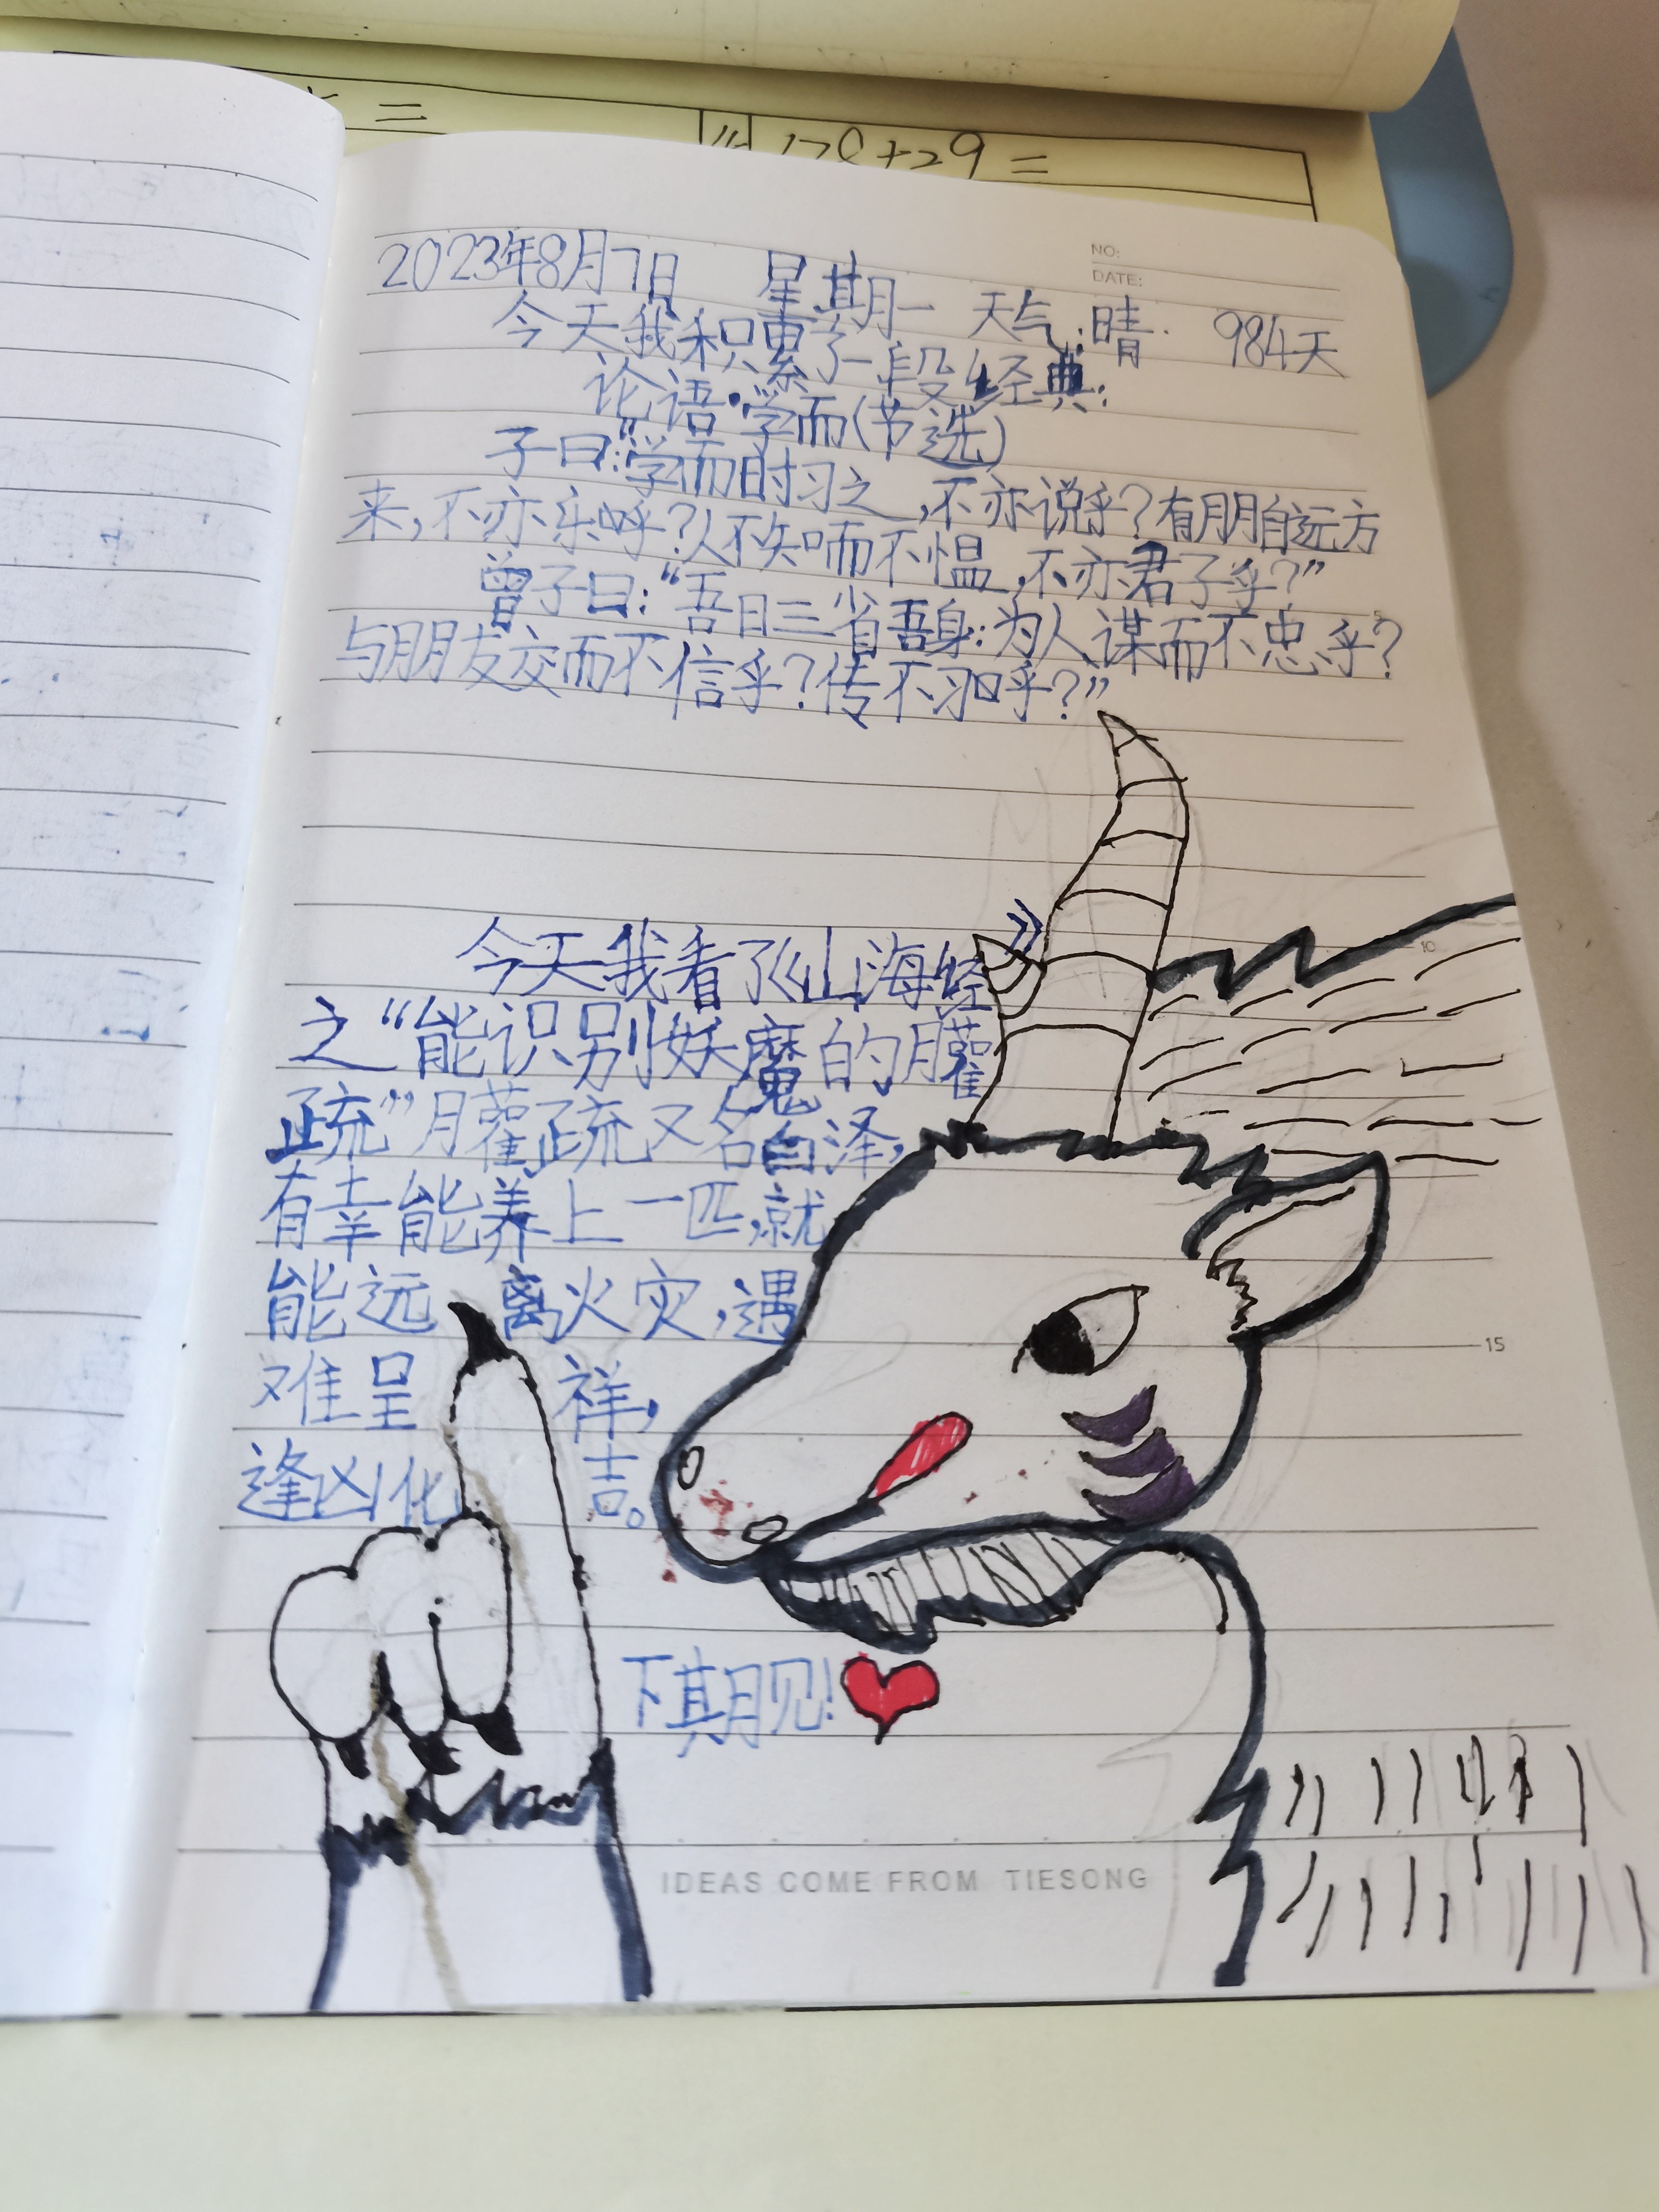 178+29=
NO:
DATE:
2023年8月7日 星期一 天气:晴. 984天
今天我积累了一段经典:
论语·学而(节选)
子曰:"学而时习之,不亦说乎?有朋自远方
来,不亦乐呼?人不知而不愠,不亦君子乎?"
曾子曰:"吾日三省吾身:为人谋而不忠乎?
与朋友交而不信乎?传不习呼?"
5
今天我看了《山海经》
10
之"能识别妖魔的臛
疏"臛疏又名白泽,
有幸能养上一匹,就
能远离火灾,遇
15
难呈祥,
逢凶化吉。
下期见!
IDEAS COME FROM TIESONG